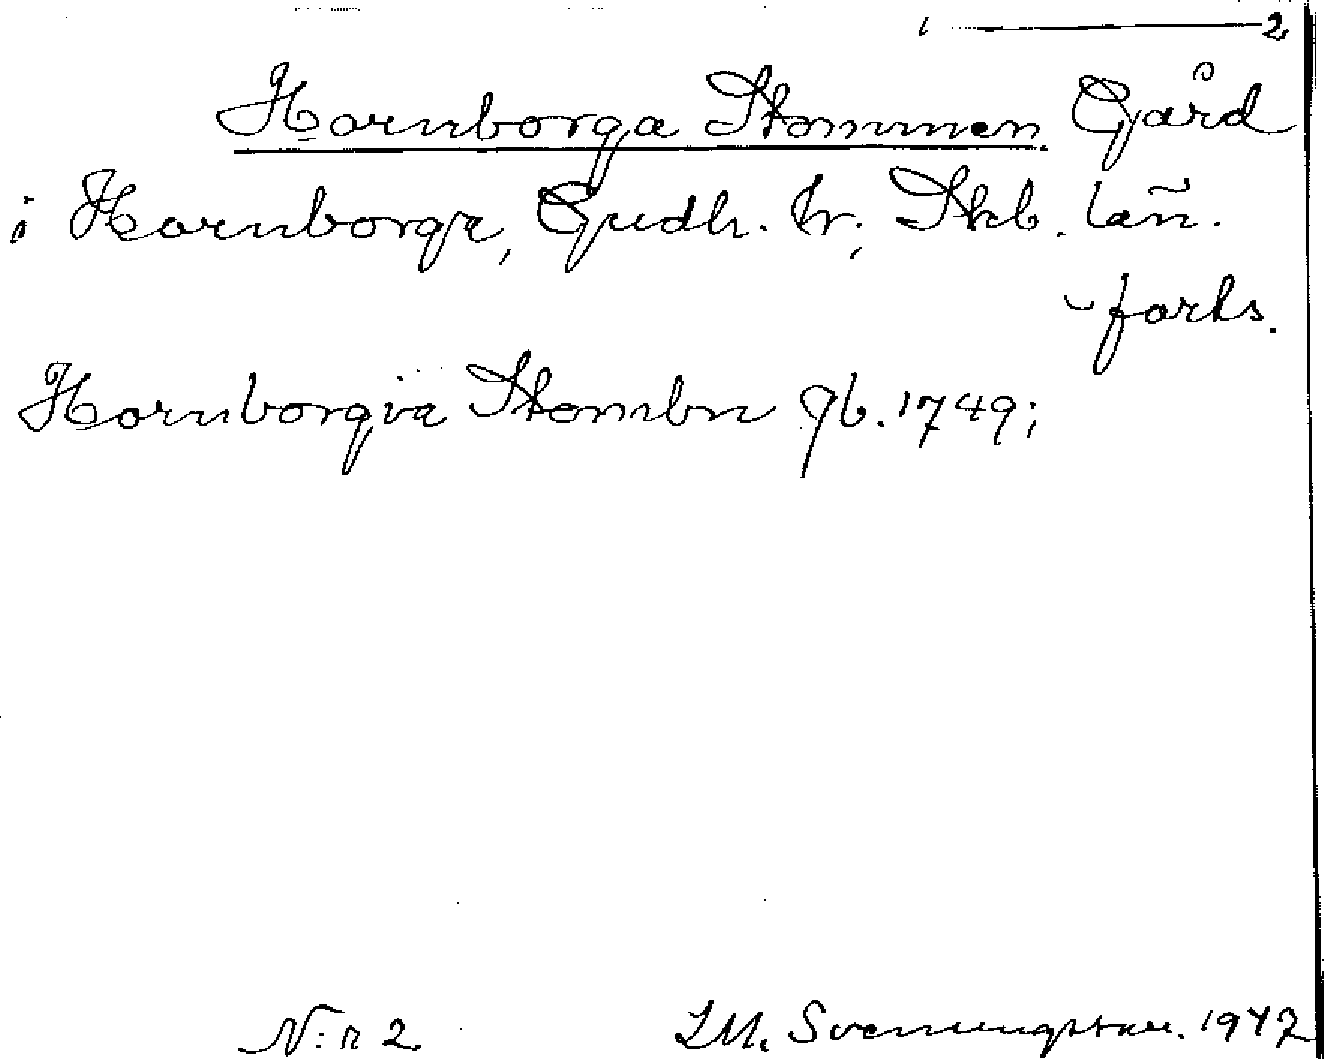 1 — 2
Hornborga Stommen Gård
i Hornborga, Gudh. hr, Skb. län.
- forts.
Hornborgia Stombn Jb. 1749;
N:r 2. I.M. Svenungsson. 1947